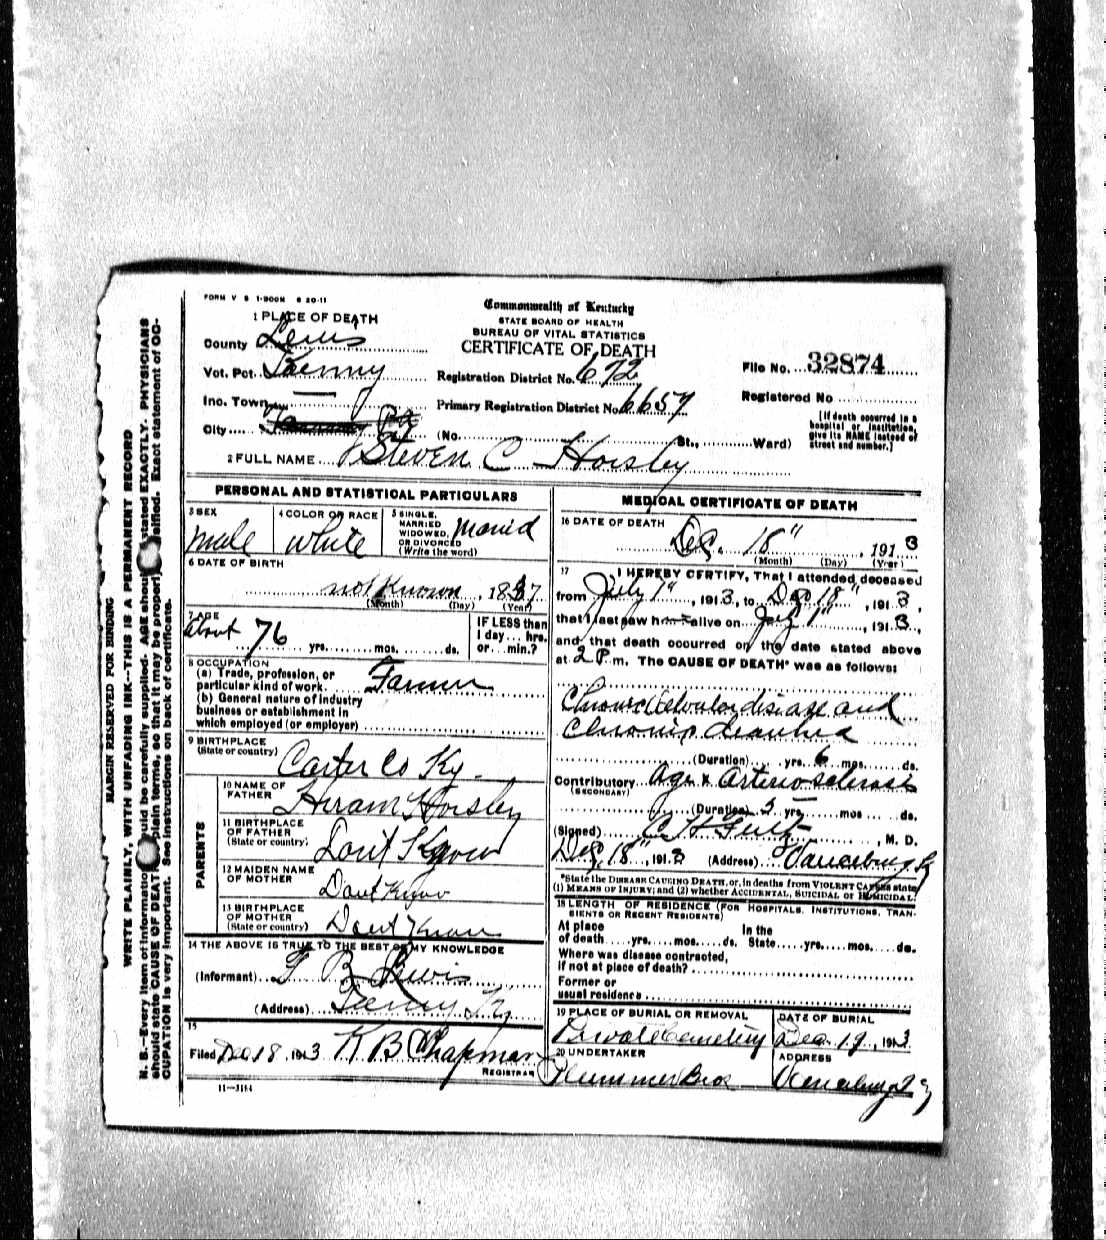 FORM V S 1-300M 6 20-11
Commonwealth of Kentucky
STATE BOARD OF HEALTH
BUREAU OF VITAL STATISTICS
CERTIFICATE OF DEATH
1 PLACE OF DEATH
County Lewis
Vot. Pct.
Inc. Town
City
Registration District No. 672
Primary Registration District No. 6657
(No. St., Ward)
File No. 32874
Registered No
[If death occurred in a
hospital or institution,
give its NAME instead of
street and number.]
2 FULL NAME Steven C Horsley
PERSONAL AND STATISTICAL PARTICULARS
3 SEX
Male
4 COLOR OR RACE
White
5 SINGLE,
MARRIED
WIDOWED,
OR DIVORCED
(Write the word)
Married
6 DATE OF BIRTH
not Known, 1837
(Month) (Day) (Year)
7 AGE
about 76
yrs. mos. ds.
IF LESS than
1 day... hrs.
or... min.?
8 OCCUPATION
(a) Trade, profession, or
particular kind of work. Farmer
(b) General nature of industry
business or establishment in
which employed (or employer)
9 BIRTHPLACE
(State or country) Carter Co Ky.
PARENTS
10 NAME OF
FATHER Hiram Horsley
11 BIRTHPLACE
OF FATHER
(State or country) Dont Know
12 MAIDEN NAME
OF MOTHER Dont Know
13 BIRTHPLACE
OF MOTHER
(State or country) Dont Know
14 THE ABOVE IS TRUE TO THE BEST OF MY KNOWLEDGE
(Informant) B Lewis
(Address) Ky
15
Filed Dec 18, 1913 K B Chapman
REGISTRAR
11-3184
MEDICAL CERTIFICATE OF DEATH
16 DATE OF DEATH
Dec. 18", 1913
(Month) (Day) (Year)
17 I HEREBY CERTIFY, That I attended deceased
from July 1", 1913, to Dec 18", 1913,
that I last saw h alive on, 1913,
and that death occurred on the date stated above
at 2 P. m. The CAUSE OF DEATH* was as follows:
Chronic Valvular disease and
Chronic
(Duration) yrs. 6 mos. ds.
Contributory Age & Arteriosclerosis
(SECONDARY)
(Duration) 5 yrs mos ds.
(Signed) C H, M. D.
Dec. 18", 1913 (Address) Vanceburg Ky
*State the DISEASE CAUSING DEATH, or, in deaths from VIOLENT CAUSES state
(1) MEANS OF INJURY; and (2) whether ACCIDENTAL, SUICIDAL or HOMICIDAL.
18 LENGTH OF RESIDENCE (FOR HOSPITALS, INSTITUTIONS, TRAN-
SIENTS OR RECENT RESIDENTS)
At place
of death yrs. mos. ds.
In the
State yrs. mos. ds.
Where was disease contracted,
if not at place of death?
Former or
usual residence
19 PLACE OF BURIAL OR REMOVAL
Private Cemetery
DATE OF BURIAL
Dec. 19, 1913
20 UNDERTAKER
Plummer Bros
ADDRESS
Vanceburg Ky
MARGIN RESERVED FOR BINDING
WRITE PLAINLY, WITH UNFADING INK—THIS IS A PERMANENT RECORD
N. B.—Every item of information should be carefully supplied. AGE should be stated EXACTLY. PHYSICIANS
should state CAUSE OF DEATH in plain terms, so that it may be properly classified. Exact statement of OC-
CUPATION is very important. See instructions on back of certificate.